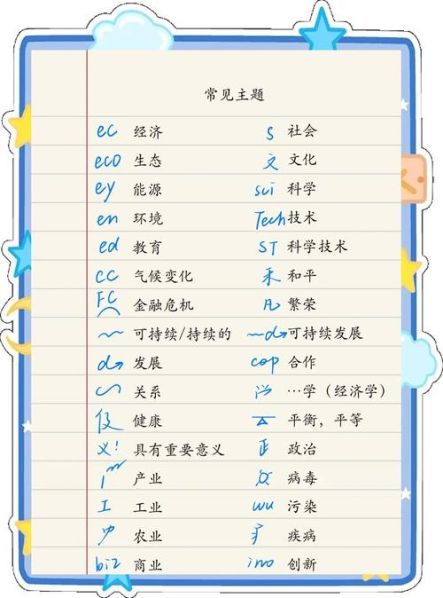 常见主题
ec 经济 s 社会
eco 生态 文 文化
ey 能源 sci 科学
en 环境 Tech 技术
ed 教育 ST 科学技术
CC 气候变化 禾 和平
FC 金融危机 繁荣
~ 可持续/持续的 ~d→ 可持续发展
d→ 发展 cop 合作
关系 …学（经济学）
健康 平衡，平等
义! 具有重要意义 正 政治
产业 病毒
工 工业 wu 污染
农业 疾病
biz 商业 ino 创新